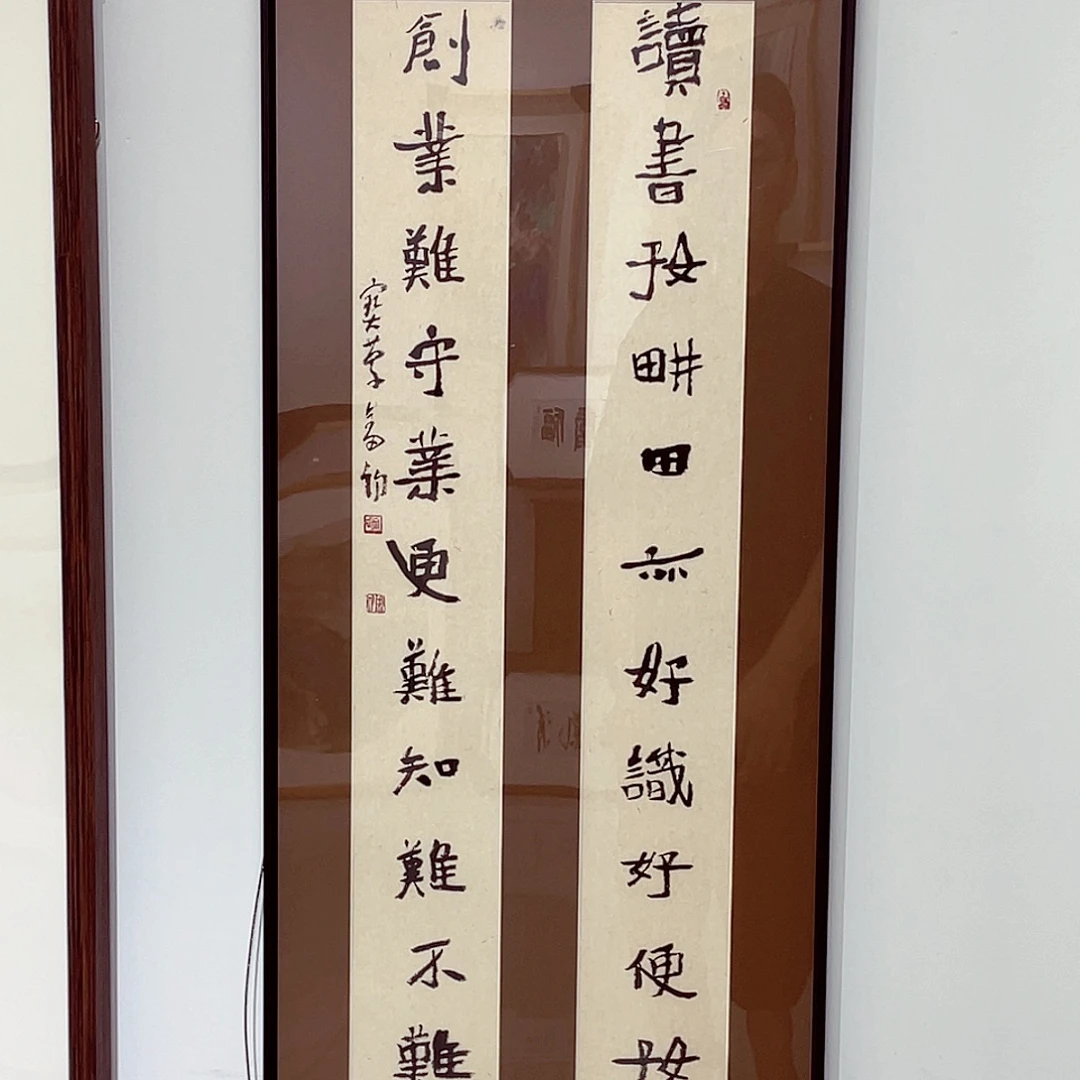 讀書好畊田亦好識好便好
創業難守業更難知難不難